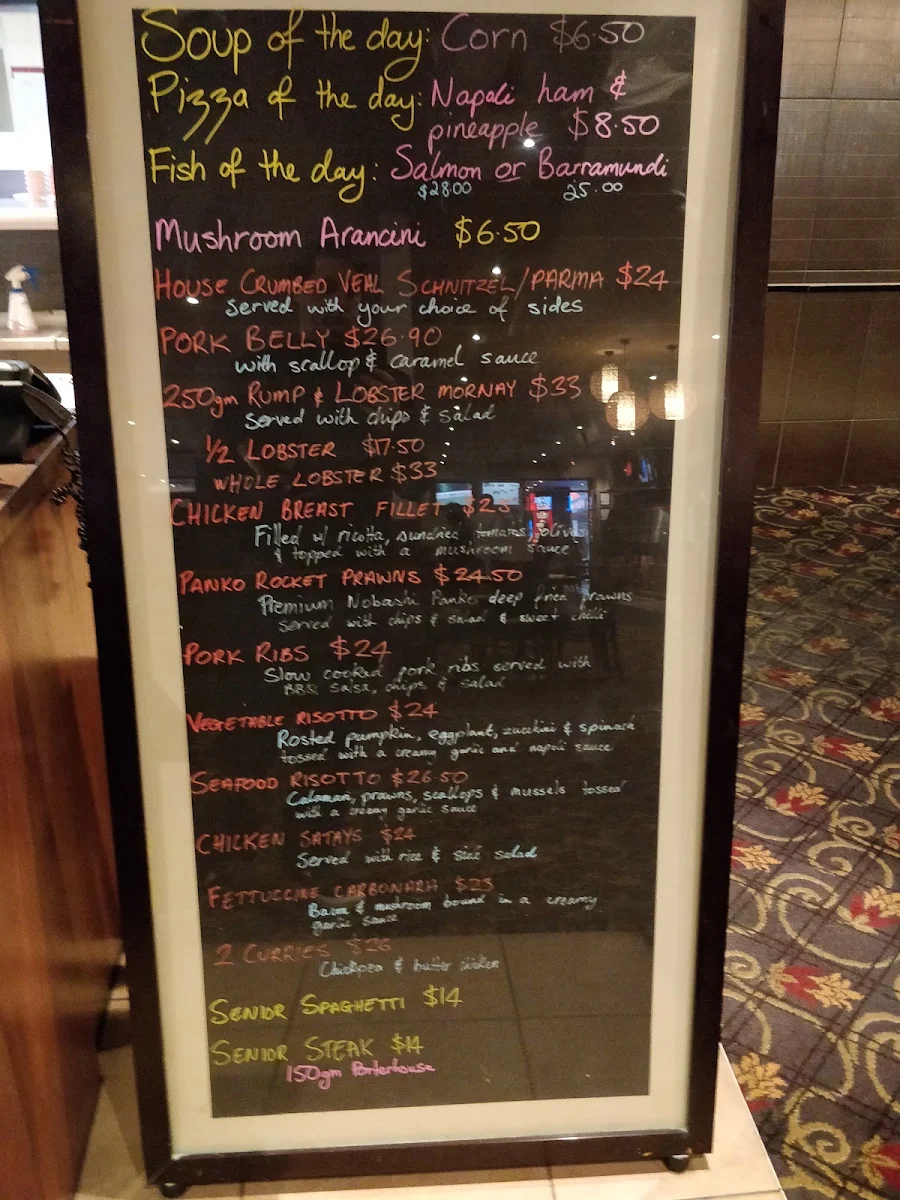 Soup of the day: Corn $6.50
Pizza of the day: Napoli ham &
pineapple $8.50
Fish of the day: Salmon or Barramundi
$28.00 25.00
Mushroom Arancini $6.50
HOUSE CRUMBED VEAL SCHNITZEL/PARMA $24
Served with your choice of sides
PORK BELLY $26.90
with scallop & caramel sauce
250gm RUMP & LOBSTER MORNAY $33
Served with chips & salad
1/2 LOBSTER $17.50
WHOLE LOBSTER $33
CHICKEN BREAST FILLET
Filled w/ ricotta, sundried tomatoes, olives
& topped with a mushroom sauce
PANKO ROCKET PRAWNS $24.50
Premium Nobashi Panko deep fried prawns
Served with chips & salad & sweet chilli
PORK RIBS $24
Slow cooked pork ribs served with
BBQ salsa, chips & salad
VEGETABLE RISOTTO $24
Rosted pumpkin, eggplant, zucchini & spinach
tossed with a creamy garlic and napoli sauce
SEAFOOD RISOTTO $26.50
Calamari, prawns, scallops & mussels tossed
with a creamy garlic sauce
CHICKEN SATAYS $24
Served with rice & side salad
FETTUCCINE CARBONARA $23
Bacon & mushroom bound in a creamy
garlic sauce
2 CURRIES $26
Chickpea & butter chicken
SENIOR SPAGHETTI $14
SENIOR STEAK $14
150gm Porterhouse